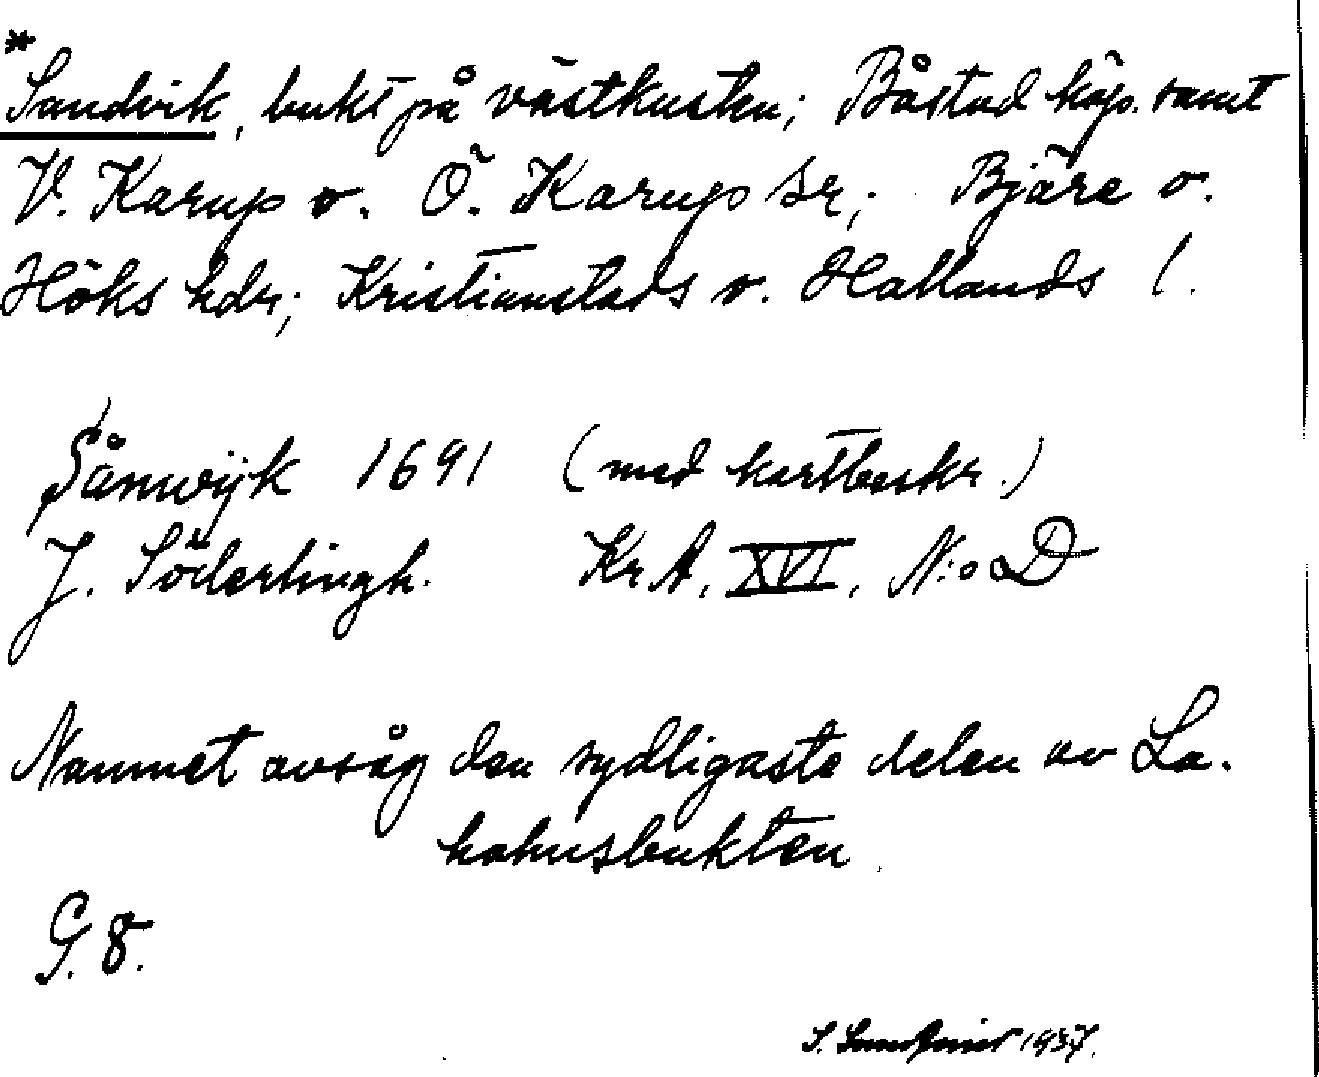 *
Sandvik, bukt på västkusten; Båstad köp. samt
V. Karup o. Ö. Karup sr; Bjäre o.
Höks hdr; Kristianstads o. Hallands l.
Sånwijk 1691 (med kartbeskr.)
J. Söderlingh. Kr A, XVI, N:o D
Namnet avsåg den sydligaste delen av La-
holmsbukten.
G. 8.
S. 1937.